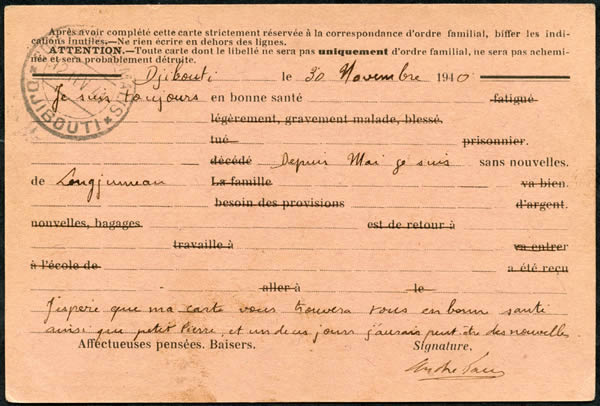 Après avoir complété cette carte strictement réservée à la correspondance d'ordre familial, biffer les indi-
cations inutiles.—Ne rien écrire en dehors des lignes.
ATTENTION.—Toute carte dont le libellé ne sera pas uniquement d'ordre familial, ne sera pas achemi-
née et sera probablement détruite.
Djibouti le 30 Novembre 1940
Je suis toujours en bonne santé fatigué
légèrement, gravement malade, blessé.
tué prisonnier.
décédé Depuis Mai je suis sans nouvelles.
de Longjumeau La famille va bien.
besoin des provisions d'argent.
nouvelles, bagages est de retour à
travaille à va entrer
à l'école de a été reçu
aller à le
J'espère que ma carte vous trouvera tous en bonne santé
ainsi que petit Pierre, et un de ces jours j'aurais peut être des nouvelles.
Affectueuses pensées. Baisers. Signature.
André
DJIBOUTI